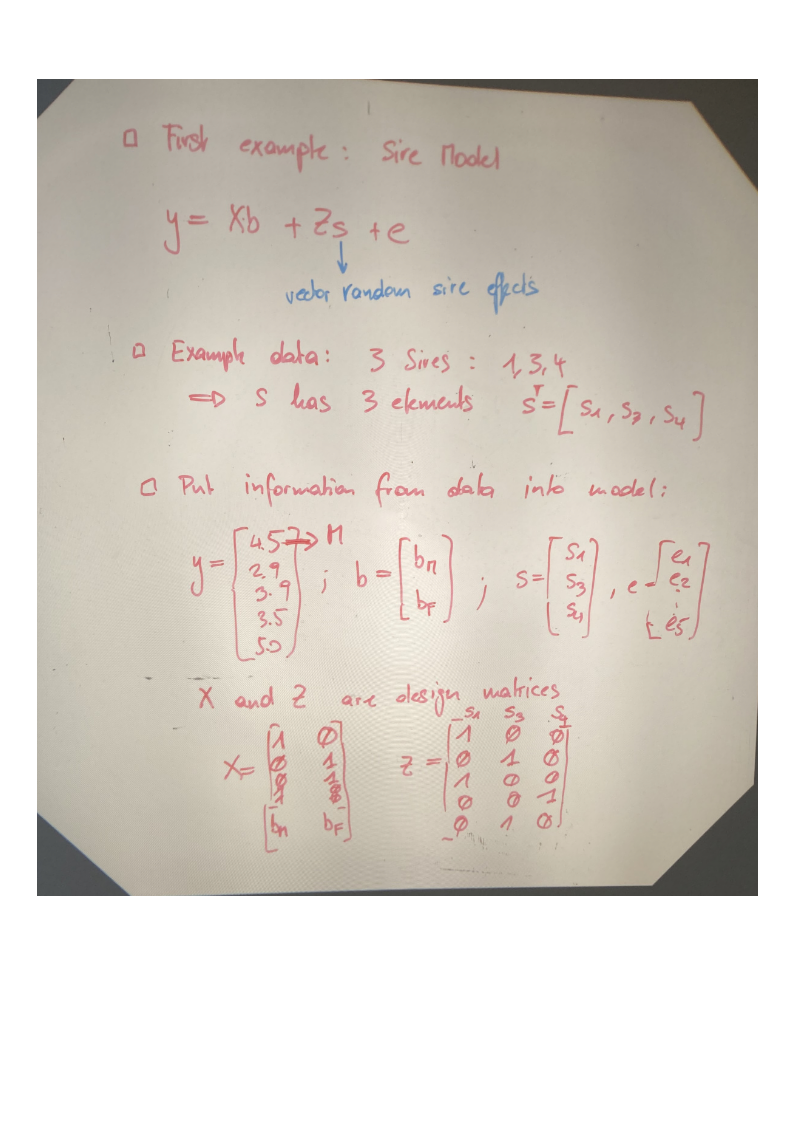 □ First example: Sire Model
y = Xb + Zs + e
↓
vector random sire effects
□ Example data: 3 Sires: 1, 3, 4
⇒ s has 3 elements s^T = [s1, s3, s4]
□ Put information from data into model:
y = [4.5 → M 2.9 3.9 3.5 5.0]; b = [bM bF]; s = [s1 s3 s4], e = [e1 e2 ⋮ e5]
X and Z are design matrices
s1 s3 s4
X = [1 0 Z = [1 0 0
0 1 0 1 0
0 1 1 0 0
1 0 0 0 1
bM bF] 0 1 0]